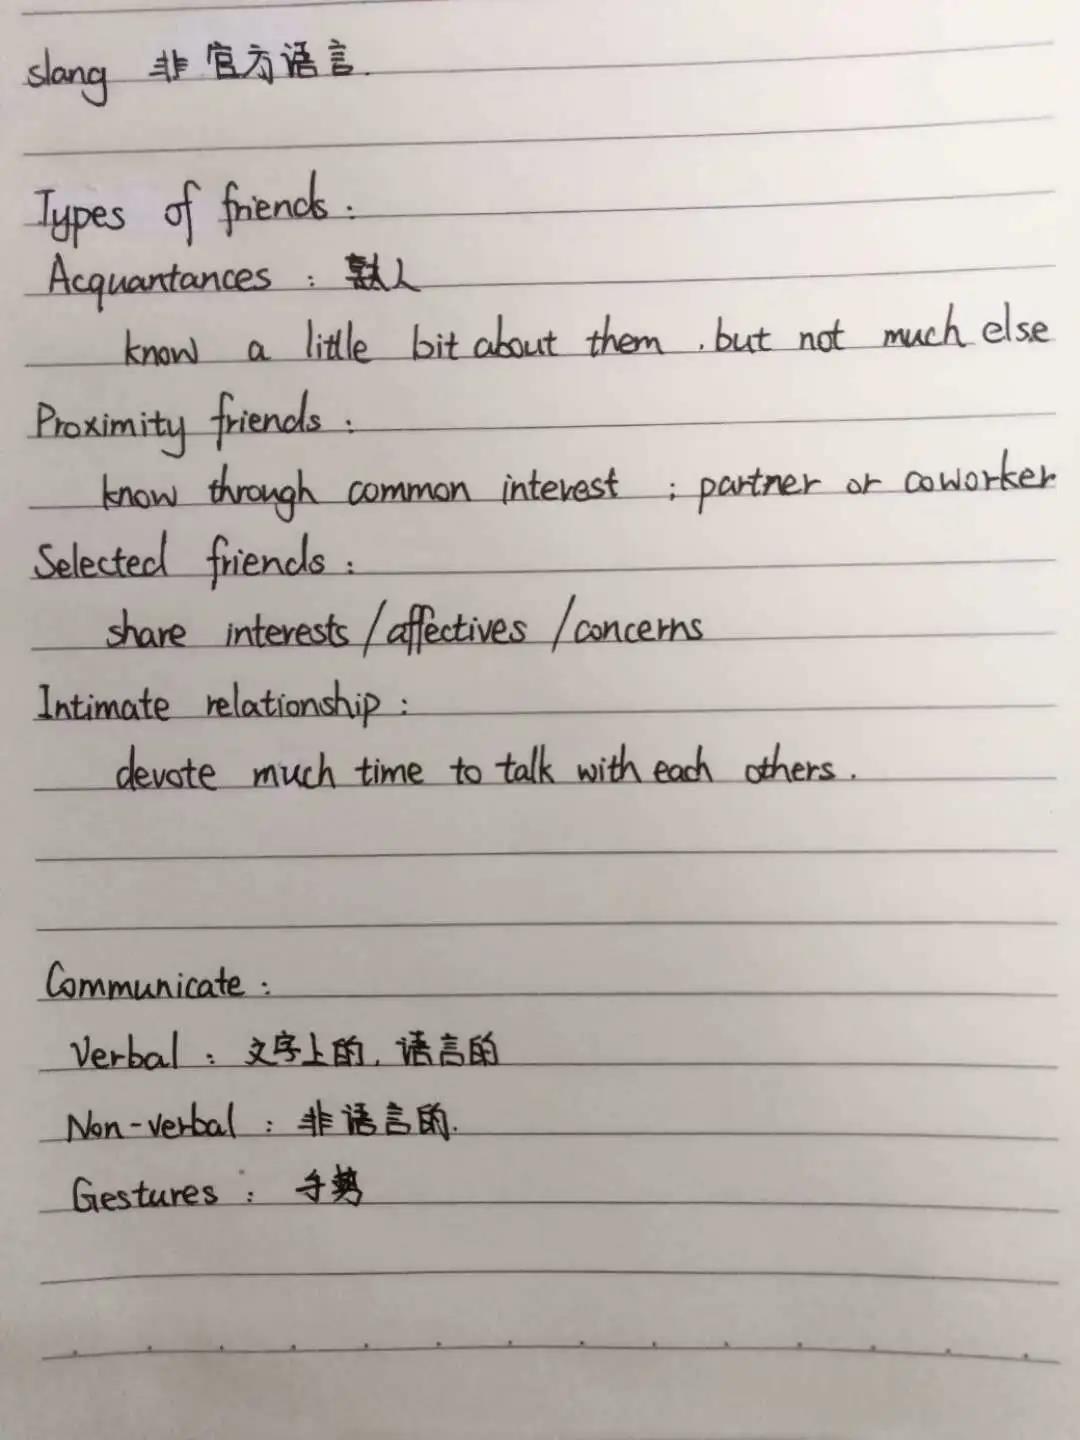 slang 非官方语言.
Types of friends:
Acquantances: 熟人
know a little bit about them, but not much else
Proximity friends:
know through common interest; partner or coworker
Selected friends:
share interests/affectives/concerns
Intimate relationship:
devote much time to talk with each others.
Communicate:
Verbal: 文字上的, 语言的
Non-verbal: 非语言的.
Gestures: 手势